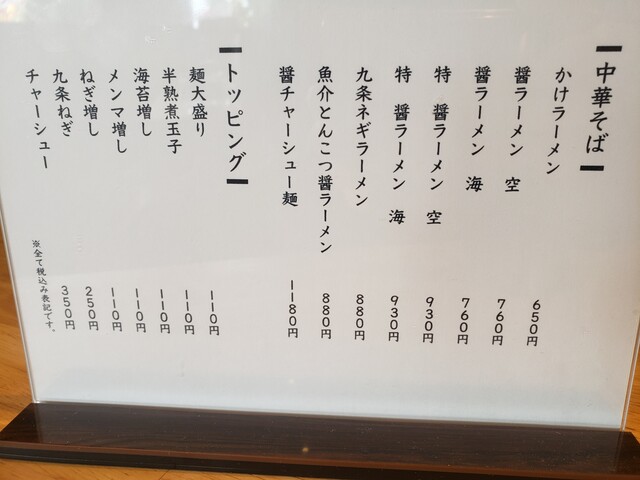 中華そば
かけラーメン 650円
醤ラーメン 空 760円
醤ラーメン 海 760円
特 醤ラーメン 空 930円
特 醤ラーメン 海 930円
九条ネギラーメン 880円
魚介とんこつ醤ラーメン 880円
醤チャーシュー麺 1180円
トッピング
麺大盛り 110円
半熟煮玉子 110円
海苔増し 110円
メンマ増し 110円
ねぎ増し 110円
九条ねぎ 250円
チャーシュー 350円
※全て税込み表記です。